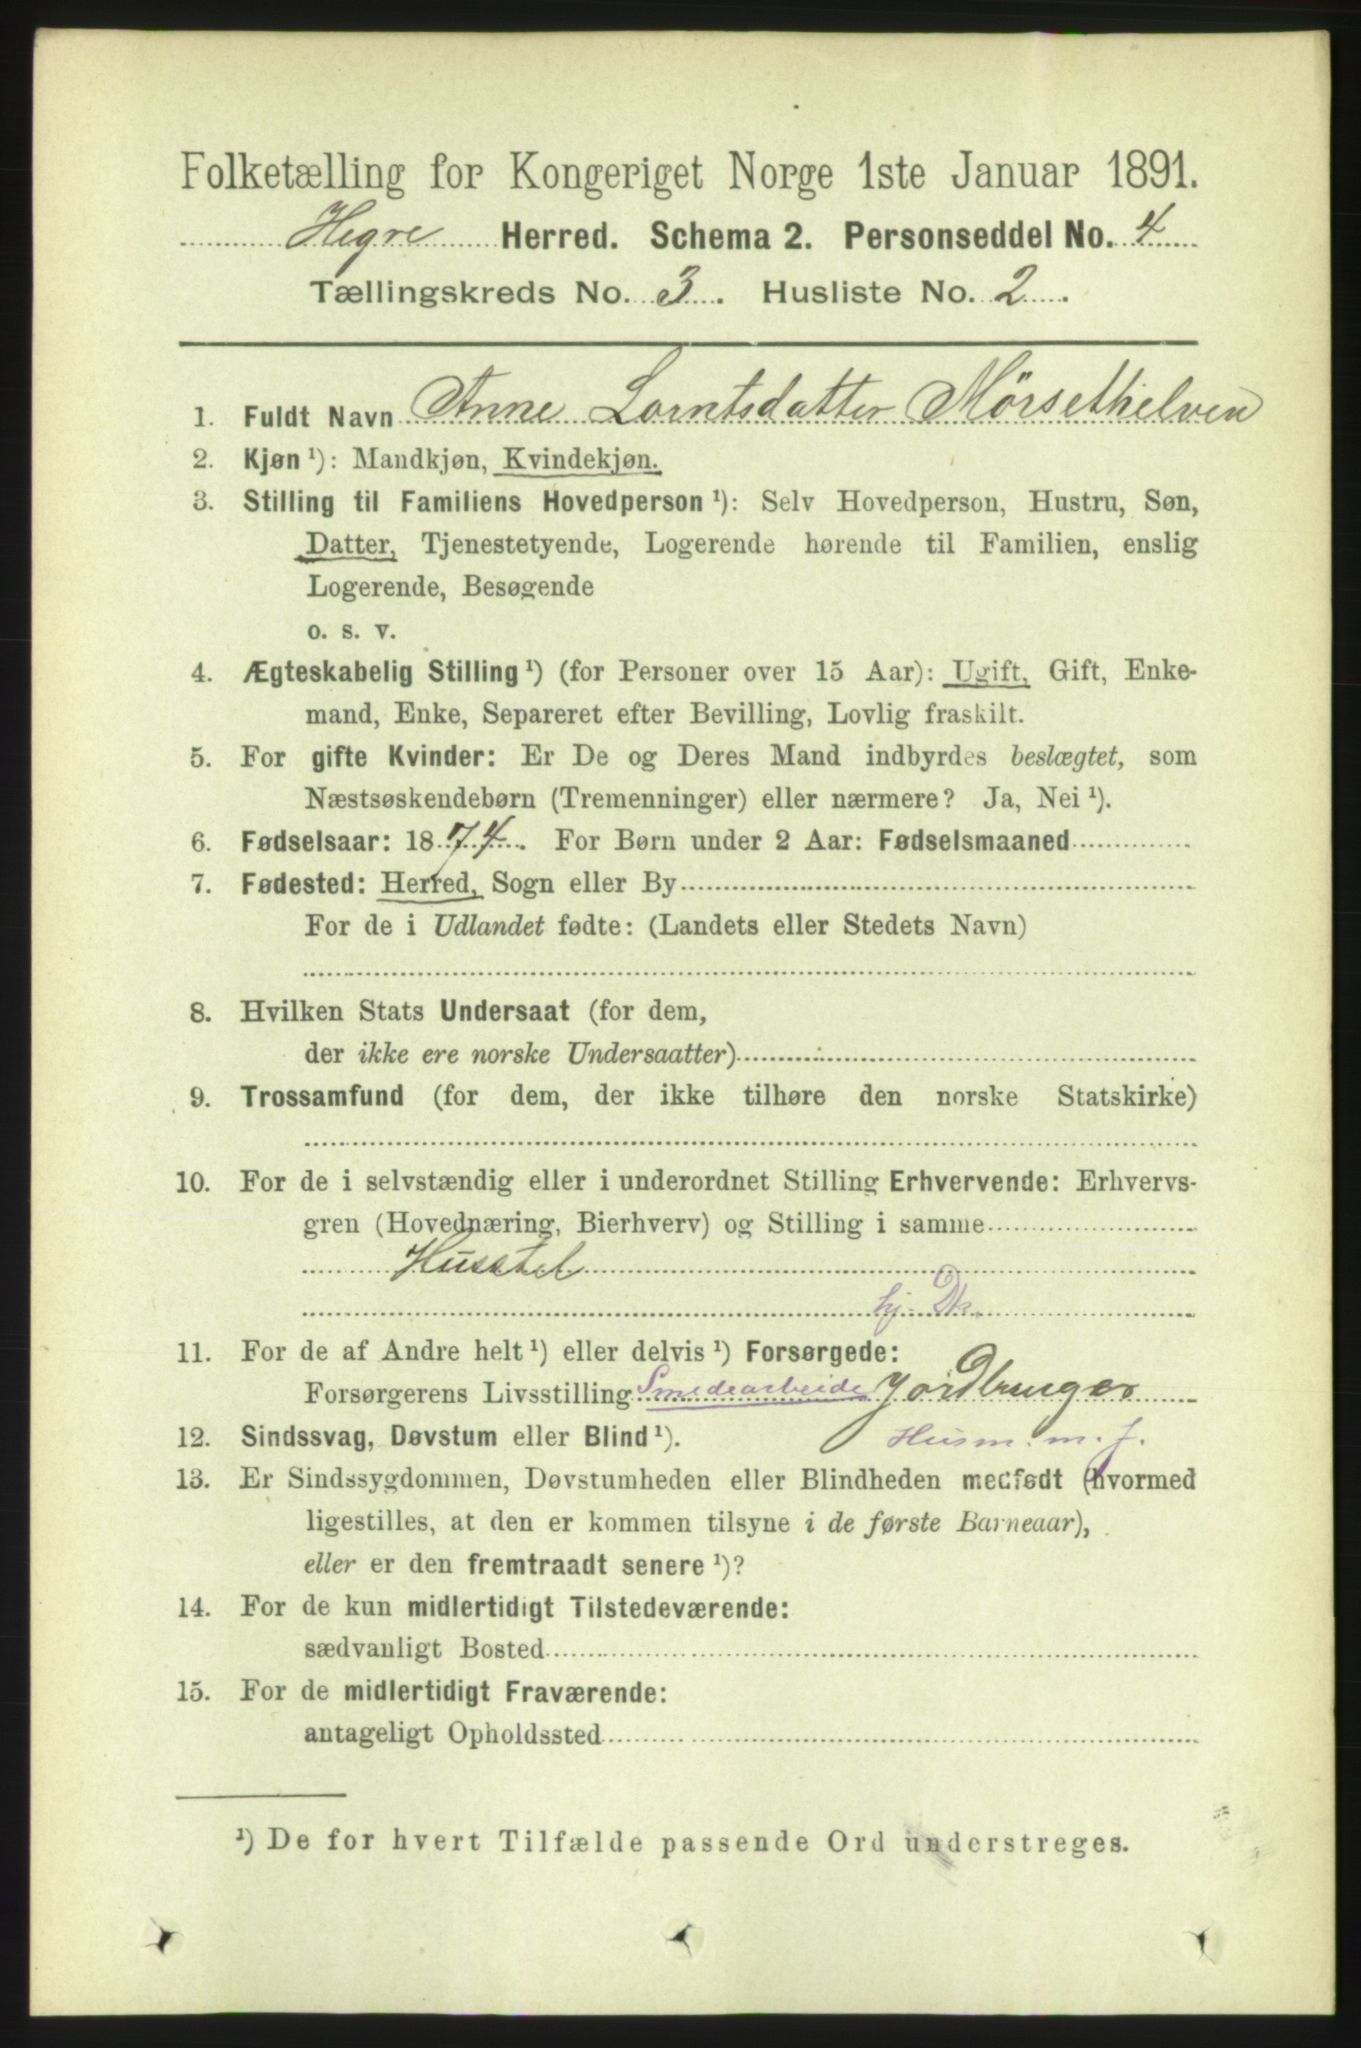 Folketælling for Kongeriget Norge 1ste Januar 1891.
Hegre Herred. Schema 2. Personseddel No. 4
Tællingskreds No. 3. Husliste No. 2.
1. Fuldt Navn Anne Lorntsdatter Mørsethelven
2. Kjøn ¹): Mandkjøn, Kvindekjøn.
3. Stilling til Familiens Hovedperson ¹): Selv Hovedperson, Hustru, Søn,
Datter, Tjenestetyende, Logerende hørende til Familien, enslig
Logerende, Besøgende
o. s. v.
4. Ægteskabelig Stilling ¹) (for Personer over 15 Aar): Ugift, Gift, Enke-
mand, Enke, Separeret efter Bevilling, Lovlig fraskilt.
5. For gifte Kvinder: Er De og Deres Mand indbyrdes beslægtet, som
Næstsøskendebørn (Tremenninger) eller nærmere? Ja, Nei ¹).
6. Fødselsaar: 1874. For Børn under 2 Aar: Fødselsmaaned
7. Fødested: Herred, Sogn eller By
For de i Udlandet fødte: (Landets eller Stedets Navn)
8. Hvilken Stats Undersaat (for dem,
der ikke ere norske Undersaatter)
9. Trossamfund (for dem, der ikke tilhøre den norske Statskirke)
10. For de i selvstændig eller i underordnet Stilling Erhvervende: Erhvervs-
gren (Hovednæring, Bierhverv) og Stilling i samme
Husstel
hj. Dr.
11. For de af Andre helt ¹) eller delvis ¹) Forsørgede:
Forsørgerens Livsstilling Smedearbeide Jordbruger
12. Sindssvag, Døvstum eller Blind ¹). Husm. m. j.
13. Er Sindssygdommen, Døvstumheden eller Blindheden medfødt (hvormed
ligestilles, at den er kommen tilsyne i de første Barneaar),
eller er den fremtraadt senere ¹)?
14. For de kun midlertidigt Tilstedeværende:
sædvanligt Bosted
15. For de midlertidigt Fraværende:
antageligt Opholdssted
¹) De for hvert Tilfælde passende Ord understreges.